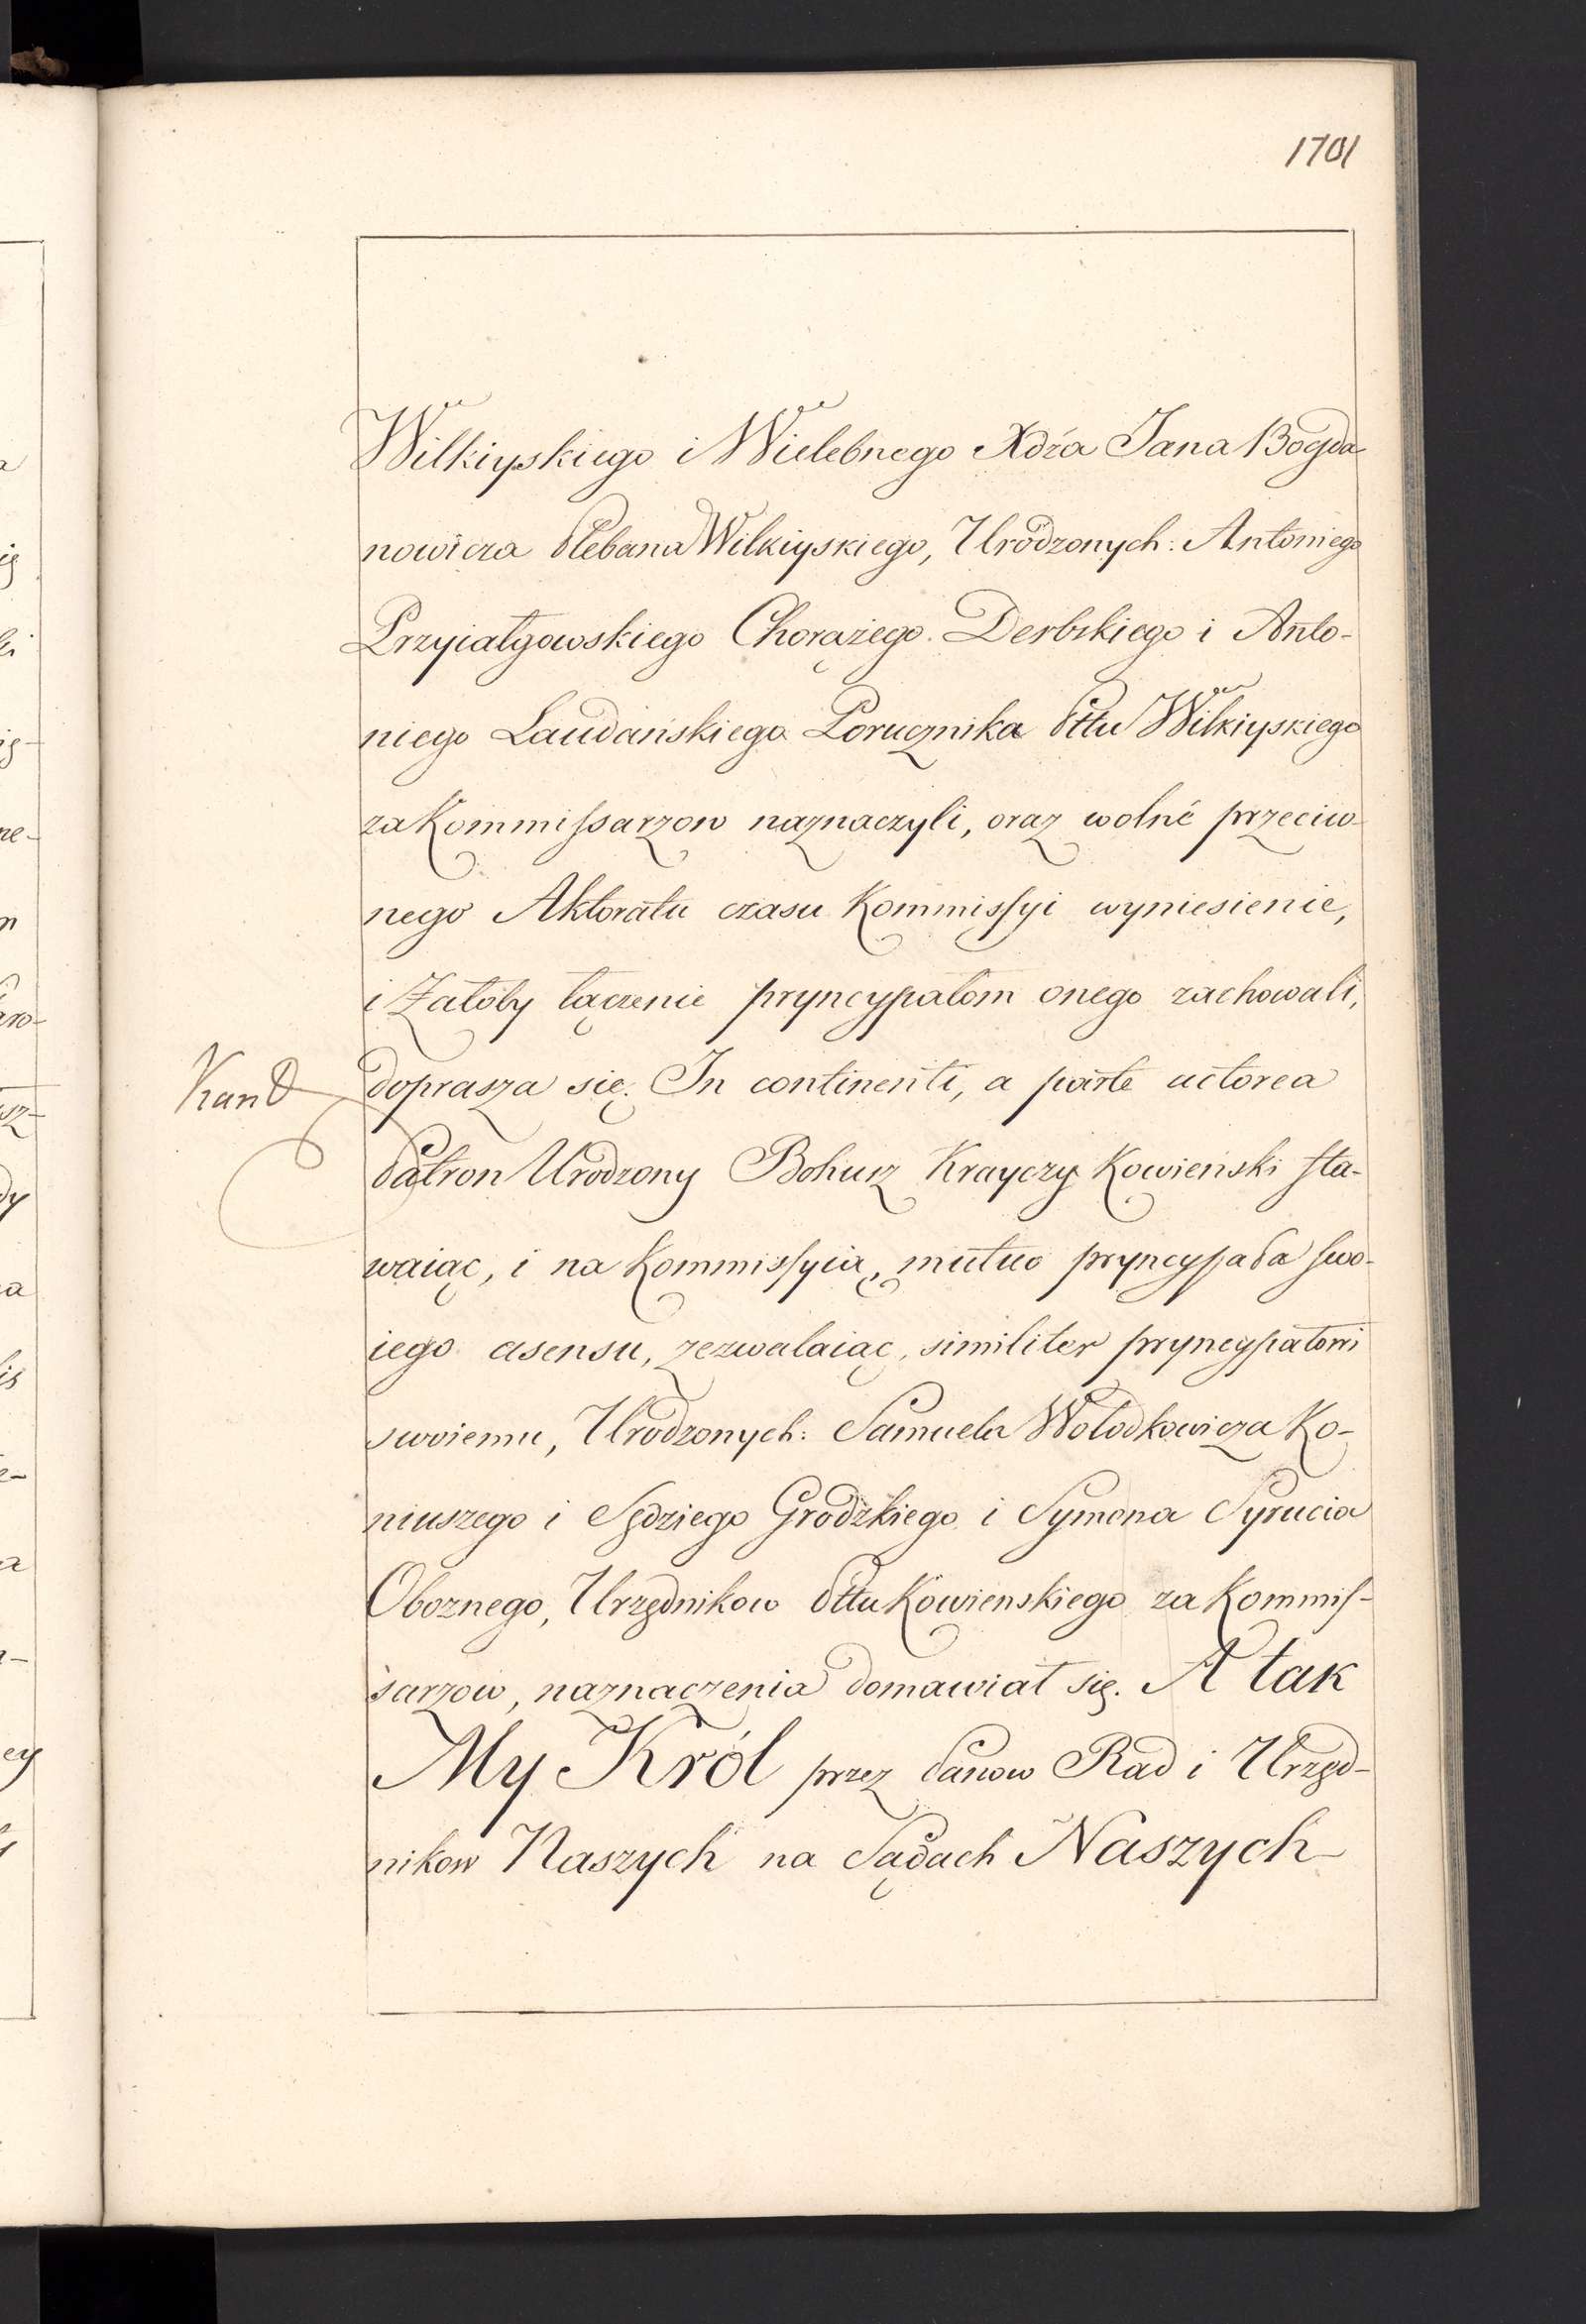 1701
Wilkiyskiego i Wielebnego Xdźa Jana Bogda-
nowicza Plebana Wilkiyskiego, Urodzonych: Antoniego
Przyiałgowskiego Chorążego Derbskiego i Anto-
niego Laudańskiego Porucznika Pttu Wilkiyskiego
za Kommissarzow naznaczyli, oraz wolne przeciw-
nego Aktoratu czasu Kommissyi wyniesienie,
i Załoby łączenie pryncypałom onego zachowali,
doprasza się. In continenti, a parte actorea
Patron Urodzony Bohusz Krayczy Kowieński sta-
waiąc, i na Kommissyią, mutuo pryncypała swo-
iego asensu, zezwalaiąc, similiter pryncypałowi
swoiemu, Urodzonych: Samuela Wołodkowicza Ko-
niuszego i Sędziego Grodzkiego i Symona Syrucia
Oboznego, Urzędnikow Pttu Kowienskiego za Kommis-
sarzow, naznaczenia domawiał się. A tak
My Król przez Panow Rad i Urzęd-
nikow Naszych na Sądach Naszych